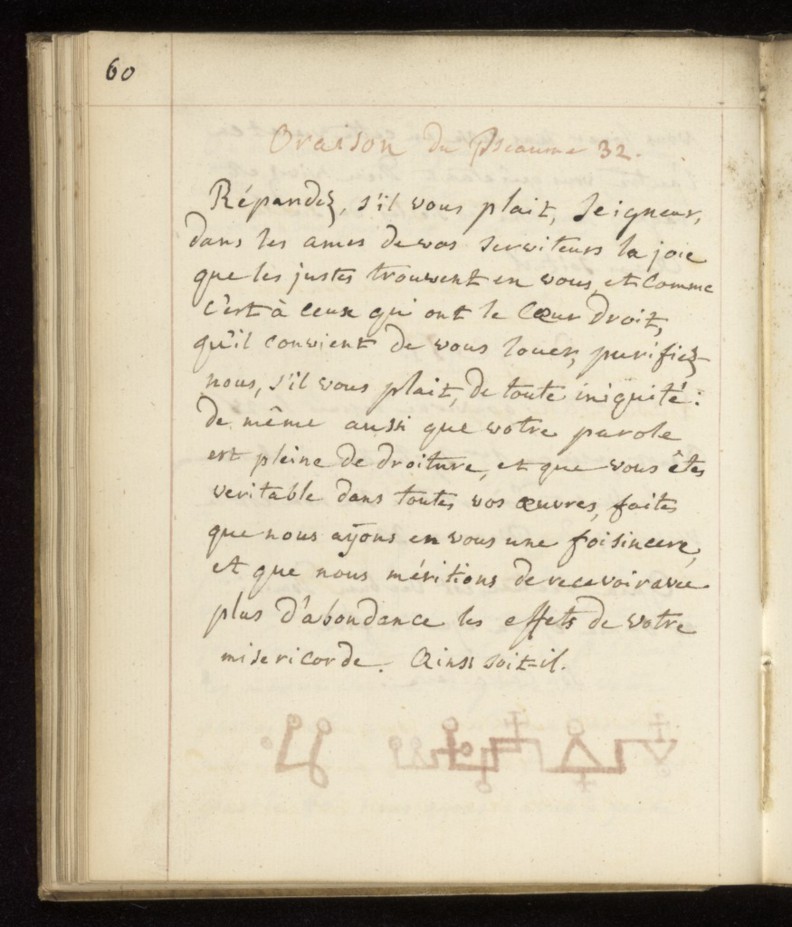 60
Oraison du Pseaume 32.
Répandez, s'il vous plait, Seigneur,
dans les ames de vos serviteurs la joie
que les justes trouvent en vous, et comme
c'est à ceux qui ont le Cœur droit,
qu'il convient de vous louer, purifiez-
nous, s'il vous plait, de toute iniquité:
de même aussi que votre parole
est pleine de droiture, et que vous êtes
veritable dans toutes vos œuvres, faites
que nous ayons en vous une foi sincere,
et que nous méritions de recevoir avec
plus d'abondance les effets de votre
misericorde. Ainsi soit-il.